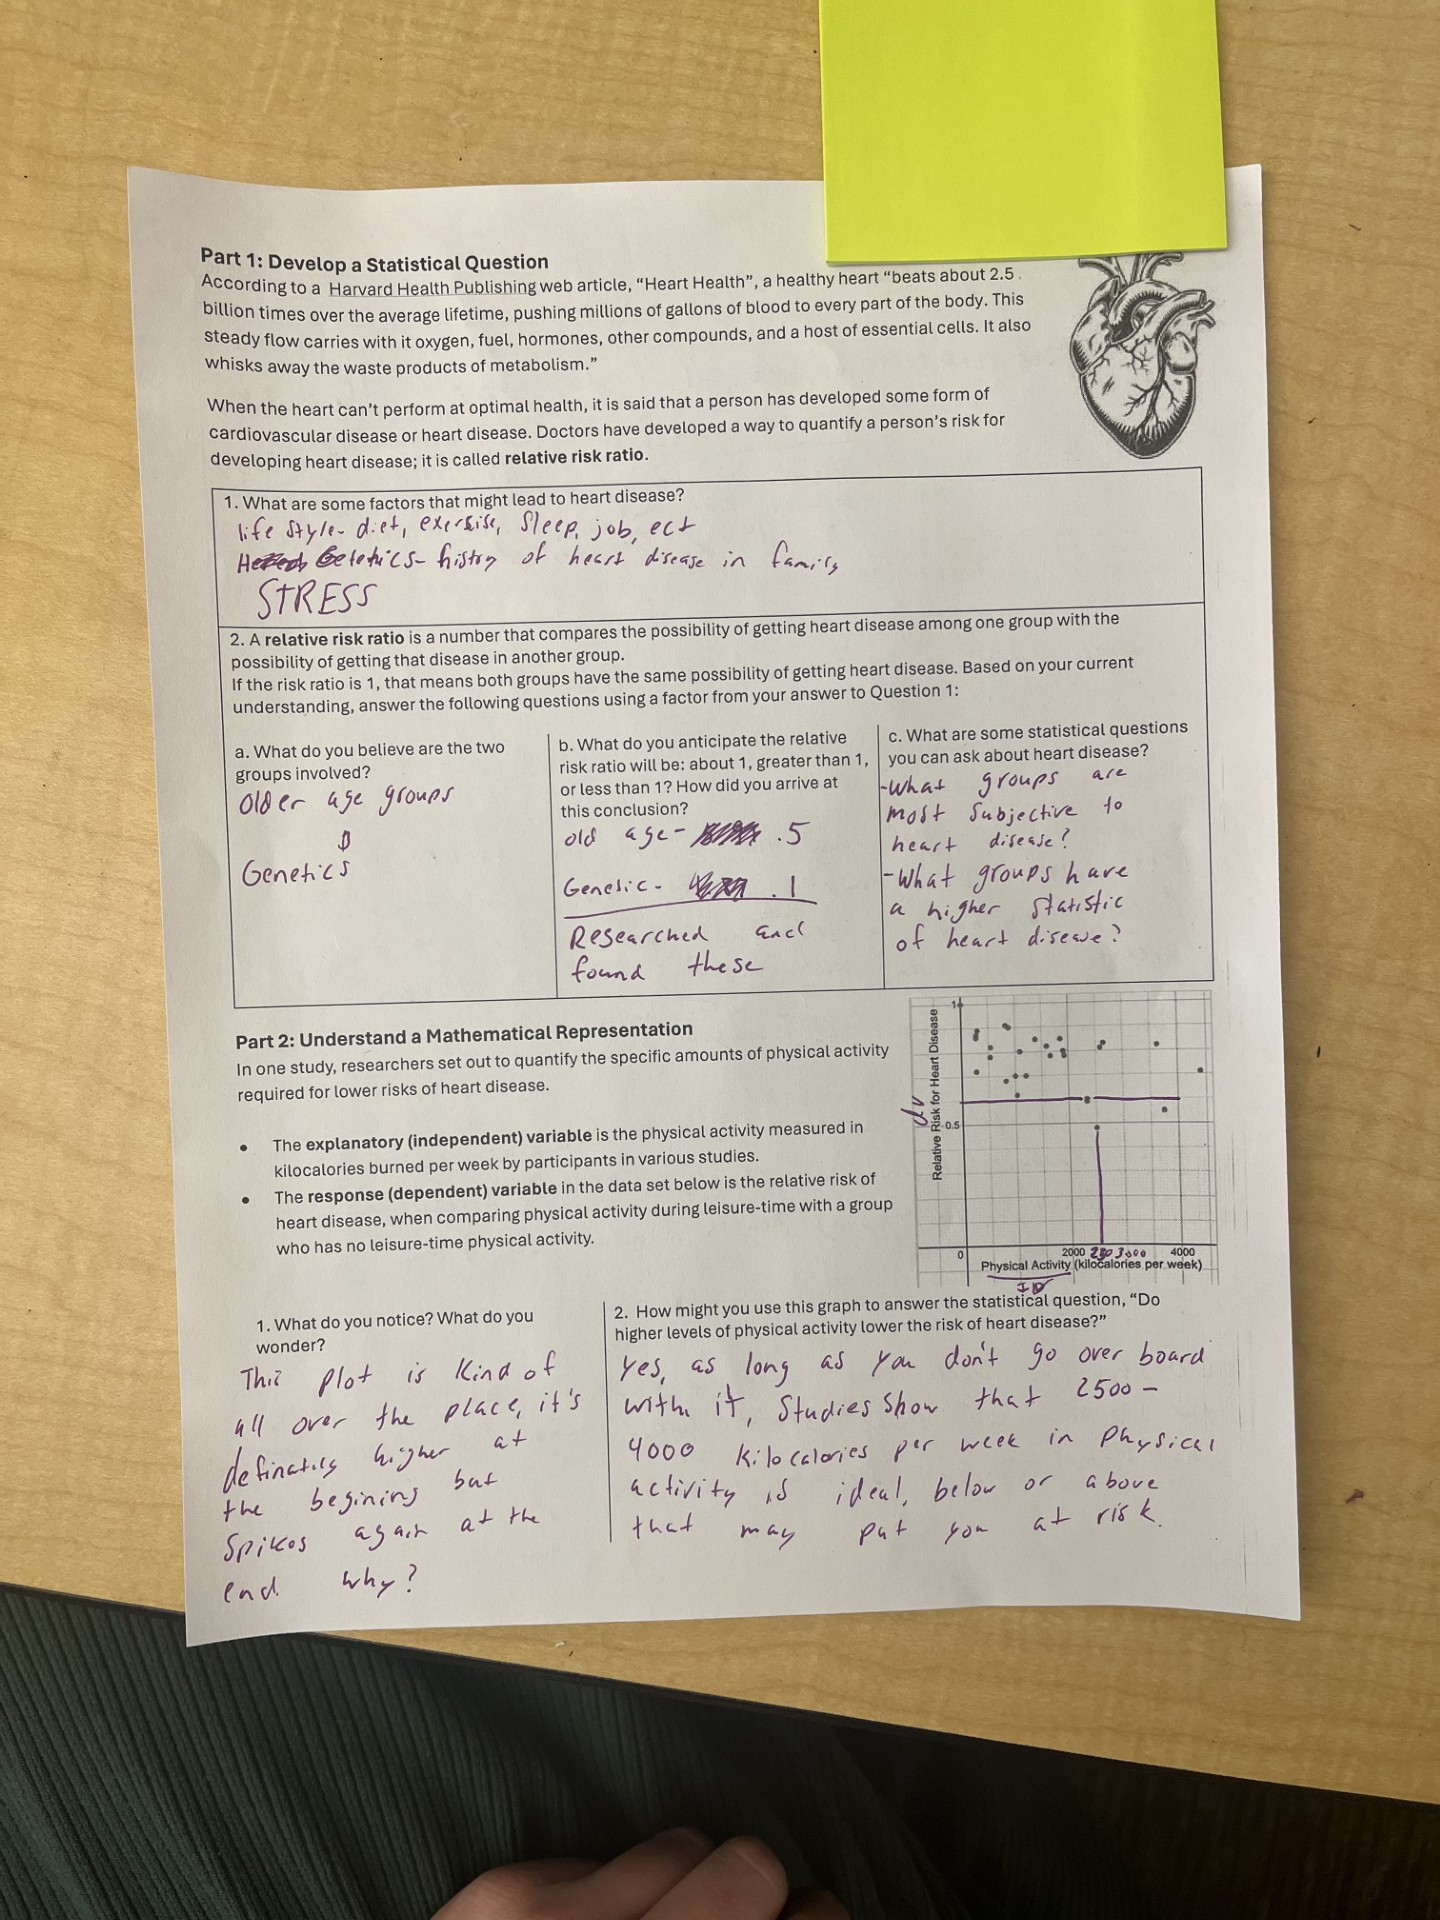 Part 1: Develop a Statistical Question
According to a Harvard Health Publishing web article, “Heart Health”, a healthy heart “beats about 2.5
billion times over the average lifetime, pushing millions of gallons of blood to every part of the body. This
steady flow carries with it oxygen, fuel, hormones, other compounds, and a host of essential cells. It also
whisks away the waste products of metabolism.”
When the heart can’t perform at optimal health, it is said that a person has developed some form of
cardiovascular disease or heart disease. Doctors have developed a way to quantify a person’s risk for
developing heart disease; it is called relative risk ratio.
1. What are some factors that might lead to heart disease?
life style- diet, exersise, sleep, job, ect
history of heart disease in family
STRESS
2. A relative risk ratio is a number that compares the possibility of getting heart disease among one group with the
possibility of getting that disease in another group.
If the risk ratio is 1, that means both groups have the same possibility of getting heart disease. Based on your current
understanding, answer the following questions using a factor from your answer to Question 1:
a. What do you believe are the two
groups involved?
Older age groups
Genetics
b. What do you anticipate the relative
risk ratio will be: about 1, greater than 1,
or less than 1? How did you arrive at
this conclusion?
old age- .5
Genetic- .1
Researched and
found these
c. What are some statistical questions
you can ask about heart disease?
-What groups are
most subjective to
heart disease?
-What groups have
a higher statistic
of heart disease?
Part 2: Understand a Mathematical Representation
In one study, researchers set out to quantify the specific amounts of physical activity
required for lower risks of heart disease.
• The explanatory (independent) variable is the physical activity measured in
kilocalories burned per week by participants in various studies.
• The response (dependent) variable in the data set below is the relative risk of
heart disease, when comparing physical activity during leisure-time with a group
who has no leisure-time physical activity.
dv
Relative Risk for Heart Disease
1
0.5
0
2000 3000 4000
Physical Activity (kilocalories per week)
1. What do you notice? What do you
wonder?
This plot is kind of
all over the place, it's
definately higher at
the begining but
spikes again at the
end. why?
2. How might you use this graph to answer the statistical question, “Do
higher levels of physical activity lower the risk of heart disease?”
Yes, as long as you don't go over board
with it, Studies show that 2500-
4000 kilocalories per week in physical
activity is ideal, below or above
that may put you at risk.